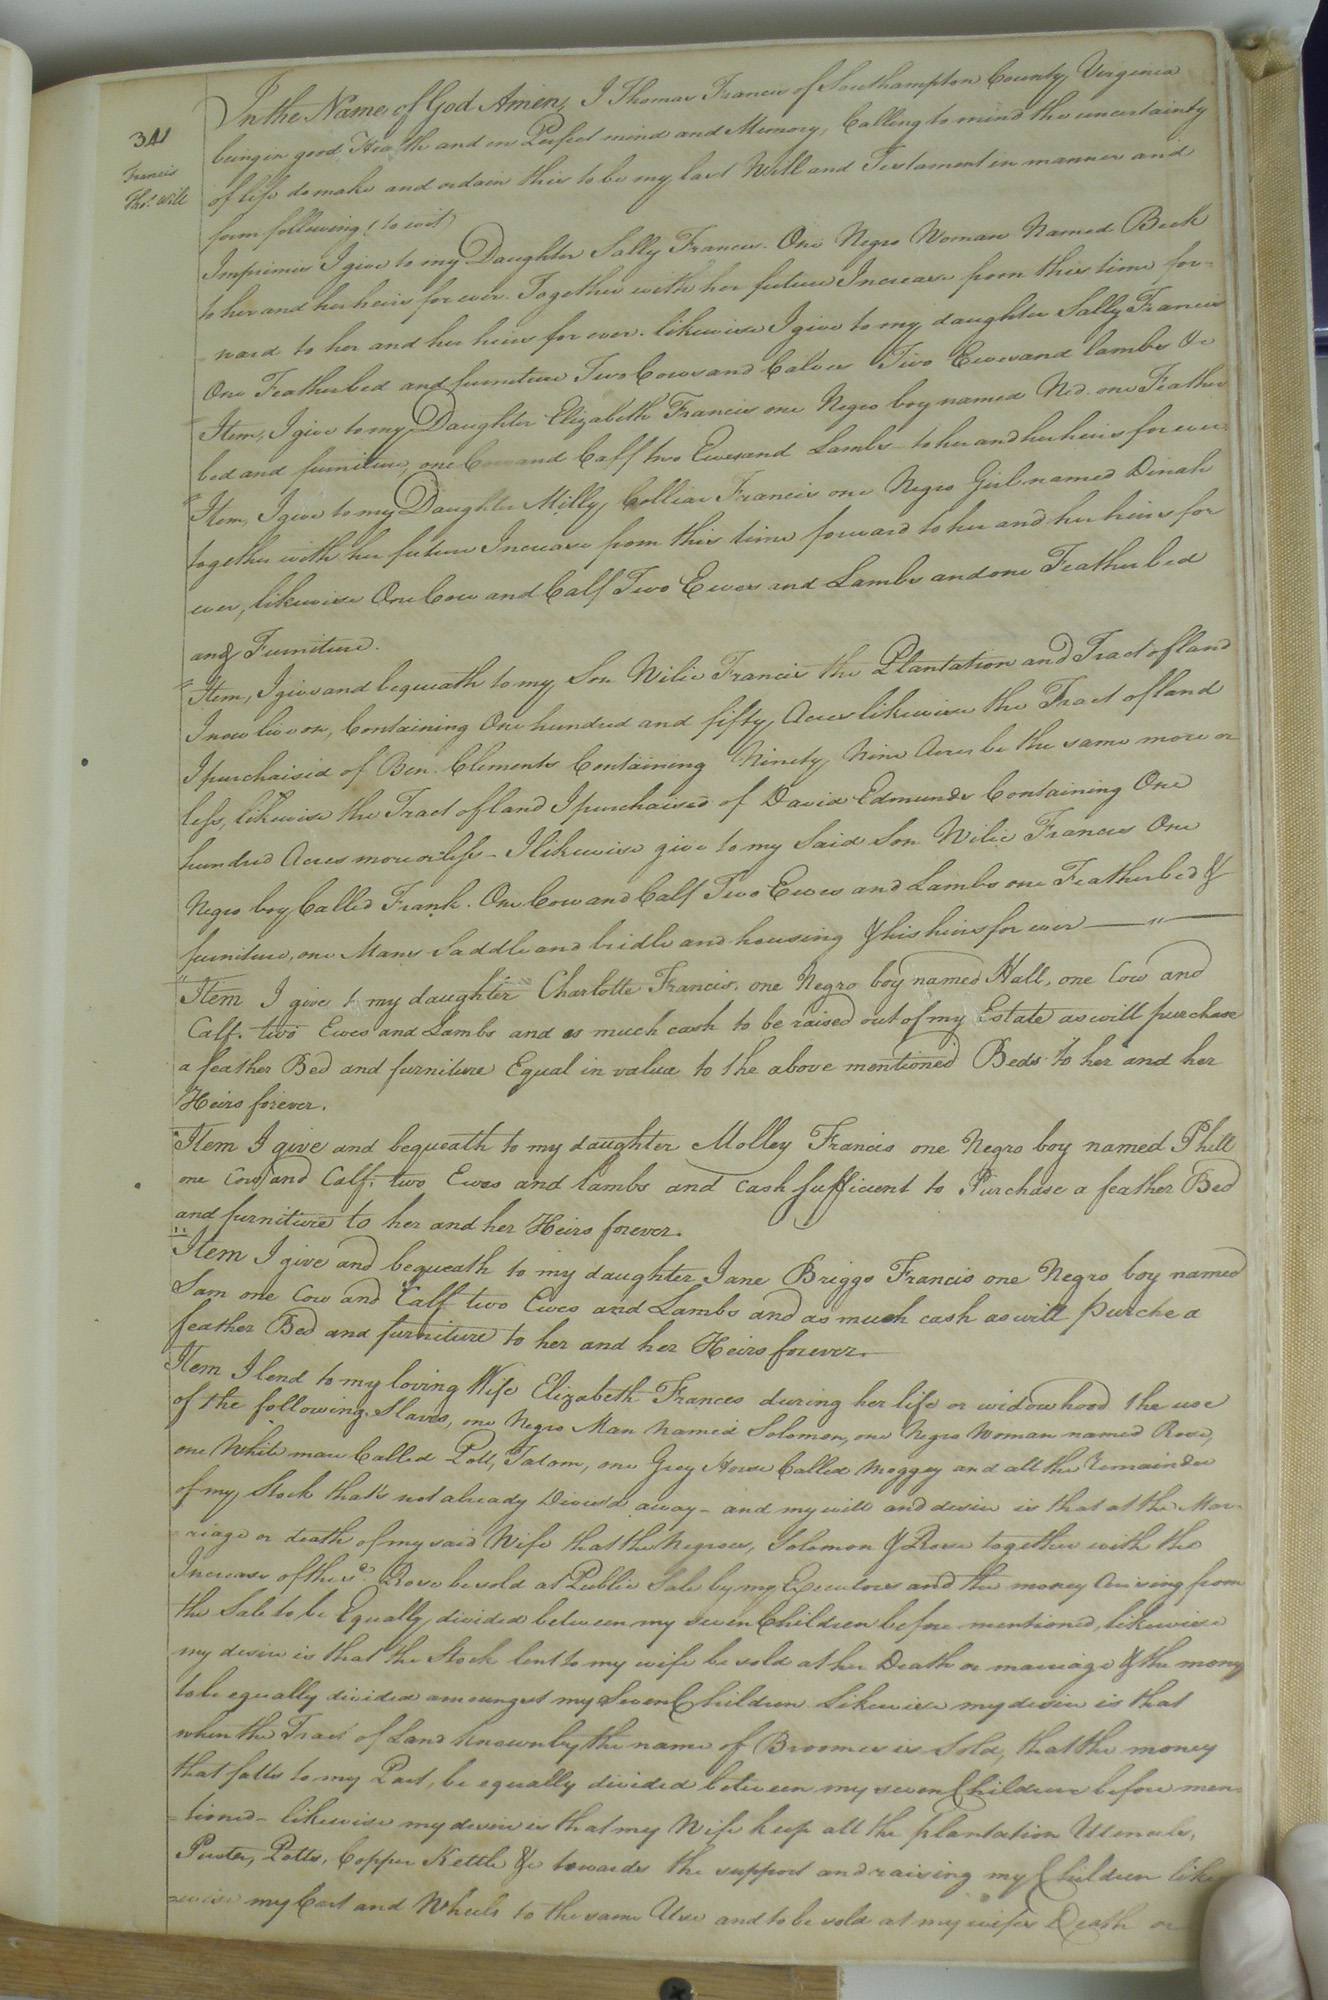 341
Francis
Thos. Will
In the Name of God Amen, I Thomas Francis of Southampton County Virginia
being in good Health and in Perfect mind and Memory, Calling to mind the uncertainty
of life do make and ordain this to be my last Will and Testament in manner and
form following (to wit)
Imprimis I give to my Daughter Sally Francis. One Negro Woman Named Beck
to her and her heirs for ever. Together with her future Increase from this time for-
ward to her and her heirs for ever. likewise I give to my daughter Sally Francis
One Feather bed and furniture Two Cows and Calves Two Ewes and lambs &c
Item, I give to my Daughter Elizabeth Francis one Negro boy named Ned. one Feather
bed and furniture, one Cow and Calf two Ewes and Lambs to her and her heirs for ever.
"Item, I give to my Daughter Milly Colliar Francis one Negro Girl named Dinah
together with her future Increase from this time forward to her and her heirs for
ever, likewise One Cow and Calf Two Ewes and Lambs and one Feather bed
and Furniture.
"Item, I give and bequeath to my Son Wilie Francis the Plantation and Tract of land
I now live on, Containing One hundred and fifty Acres likewise the Tract of land
I purchaised of Ben. Clements Containing Ninety Nine Acres be the same more or
less, likewise the Tract of land I purchaised of David Edmunds Containing One
hundred Acres more or less - I likewise give to my Said Son Wilie Francis One
Negro boy Called Frank. One Cow and Calf Two Ewes and Lambs one Feather bed &
furniture, one Mans Saddle and bridle and housing & his heirs for ever — " —
"Item I give to my daughter Charlotte Francis. one Negro boy named Hall, one Cow and
Calf. two Ewes and Lambs and as much cash to be raised out of my Estate as will purchase
a feather Bed and furniture Equal in value to the above mentioned Beds to her and her
Heirs forever.
"Item I give and bequeath to my daughter Molley Francis one Negro boy named Phill
one Cow and Calf. two Ewes and lambs and cash sufficient to Purchase a feather Bed
and furniture to her and her Heirs forever.
"Item I give and bequeath to my daughter Jane Briggs Francis one Negro boy named
Sam one Cow and Calf two Ewes and Lambs and as much cash as will purche a
feather Bed and furniture to her and her Heirs forever.
Item I lend to my loving Wife Elizabeth Frances during her life or widowhood the use
of the following Slaves, one Negro Man Named Solomon, one Negro Woman named Rose,
one White mare Called Poll, Tatom, one Grey Horse Called Moggey and all the Remainder
of my Stock that's not already Divis'd away - and my will and desire is that at the Mar-
-riage or death of my said Wife that the Negroes, Solomon & Rose together with the
Increase of the sd. Rose be sold at Public Sale by my Executors and the money Arising from
the Sale to be Equally divided between my seven Children before mentioned, likewise
my desire is that the Stock lent to my wife be sold at her Death or marriage & the mony
to be equally divided amoungst my Seven Children Likewise my desire is that
when the Tract of Land known by the name of Broomes is Sold, that the money
that falls to my Part, be equally divided between my seven Children before men-
-tioned - likewise my desire is that my Wife keep all the plantation Utensils,
Pewter, Potts, Copper Kettle &c towards the support and raising my Children like
-wise my Cart and Wheels to the same Use and to be sold at my wifes Death or